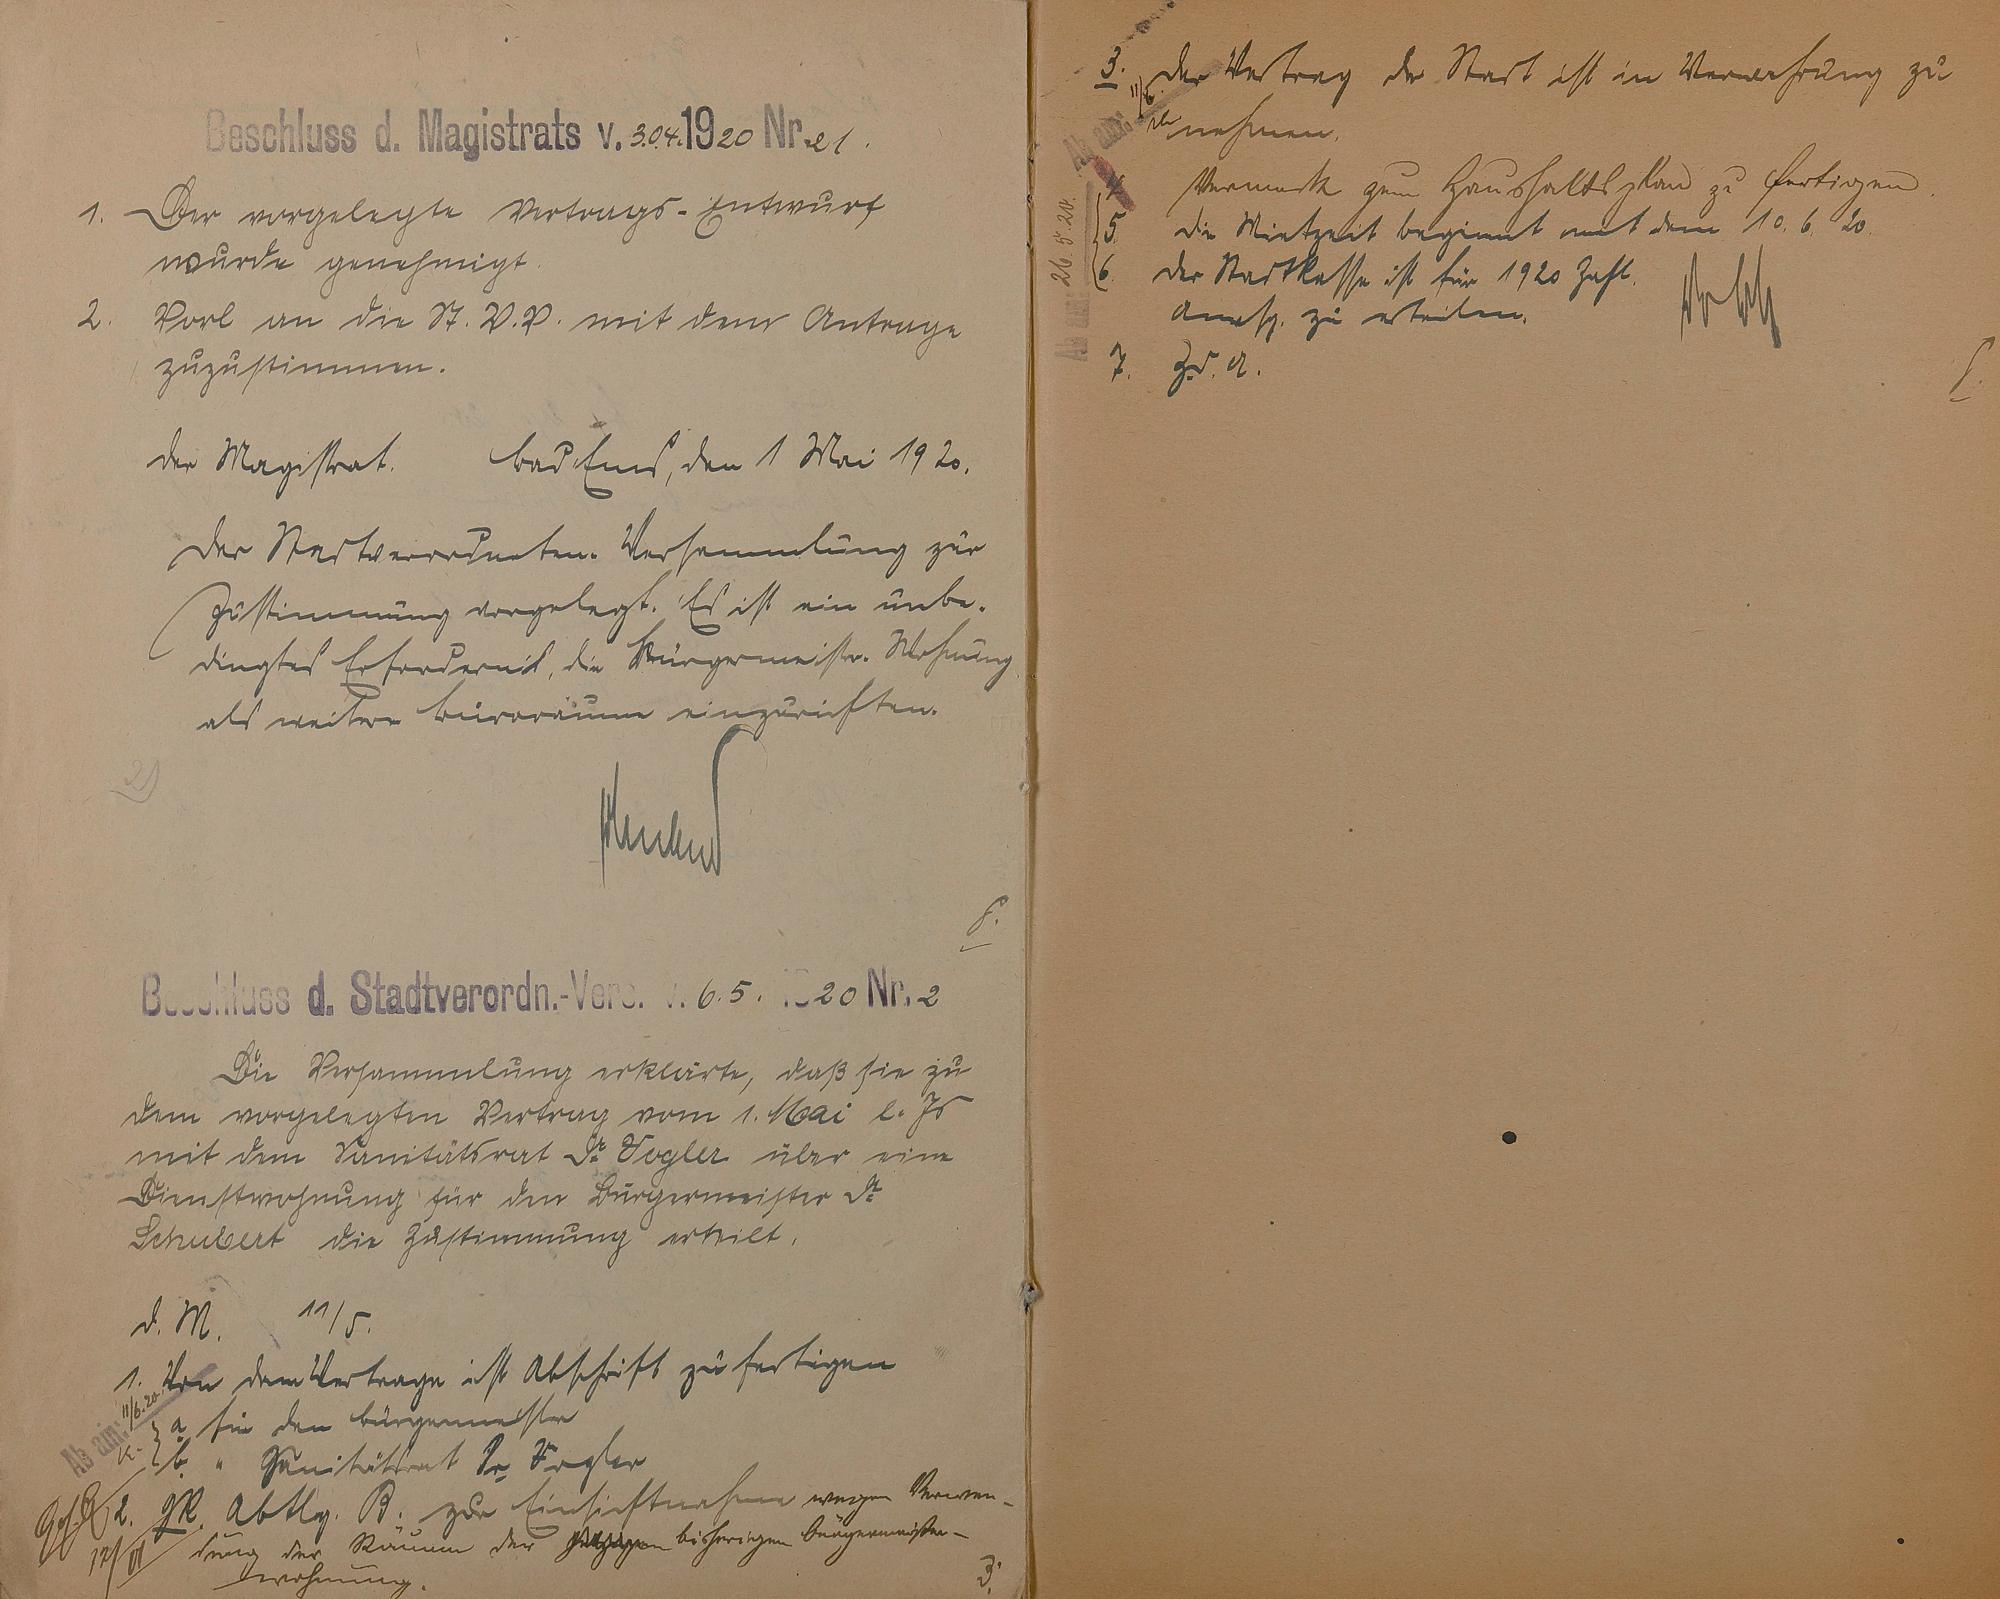 Beschluss d. Magistrats v. 30.4.1920 Nr. 21.
1. Der vorgelegte Vertrags-Entwurf
wurde genehmigt.
2. Vorl an die St. V. V. mit dem Antrage
zuzustimmen.
der Magistrat. Bad Ems, den 1 Mai 1920.
Der Stadtverordneten-Versammlung zur
Zustimmung vorgelegt. Es ist ein unbe-
dingtes Erfordernis, die Bürgermeister-Wohnung
als weitere Büroräume einzurichten.
2)
f.
Beschluss d. Stadtverordn.-Vers. v. 6.5. 1920 Nr. 2
Die Versammlung erklärte, daß sie zu
dem vorgelegten Vertrag vom 1. Mai l. Js
mit dem Sanitätsrat Dr Vogler über eine
Dienstwohnung für den Bürgermeister Dr
Schubert die Zustimmung erteilt.
d. M. 11/5.
1. Von dem Vertrage ist Abschrift zu fertigen
a für den Bürgermeister
b. " Sanitätsrat Dr Vogler
Ab am: 11/6.20.
2. gR. Abtlg. B. zur Einsichtnahme wegen Verwen-
dung der Räume der bisherigen Bürgermeister-
wohnung.
3.
3. Der Vertrag der Stadt ist in Verwahrung zu
nehmen.
Ab am: 11/6.
4 Vermerk zum Haushaltsplan zu fertigen.
5. die Mietzeit beginnt mit dem 10. 6. 20.
6. der Stadtkasse ist für 1920 Zahl.
Anwsg. zu erteilen.
Ab am: 26. 5. 20.
7. Z. d. A.
f.